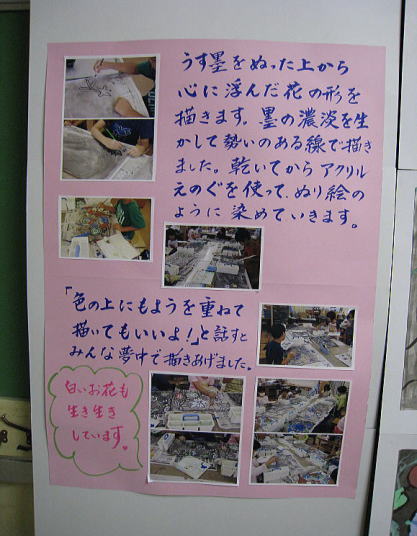 うす墨をぬった上から
心に浮んだ花の形を
描きます。墨の濃淡を生
かして勢いのある線で描き
ました。乾いてからアクリル
えのぐを使って、ぬり絵の
ように染めていきます。
「色の上にもようを重ねて
描いてもいいよ!」と話すと
みんな夢中で描きあげました。
白いお花も
生き生き
しています。